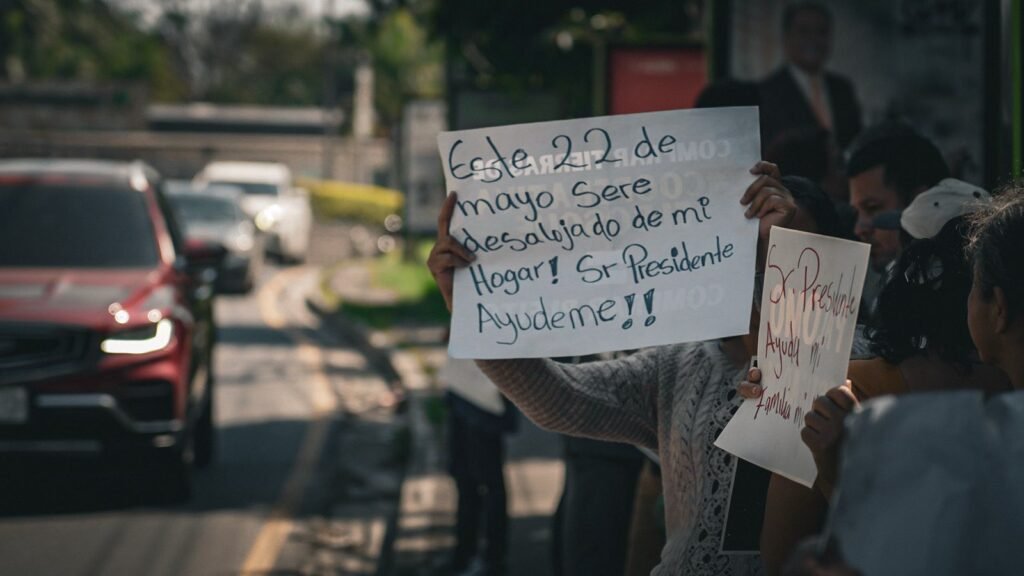 Este 22 de
mayo Sere
desalojado de mi
Hogar! Sr Presidente
Ayudeme!!
Sr. Presidente
Ayuda mi
Familia